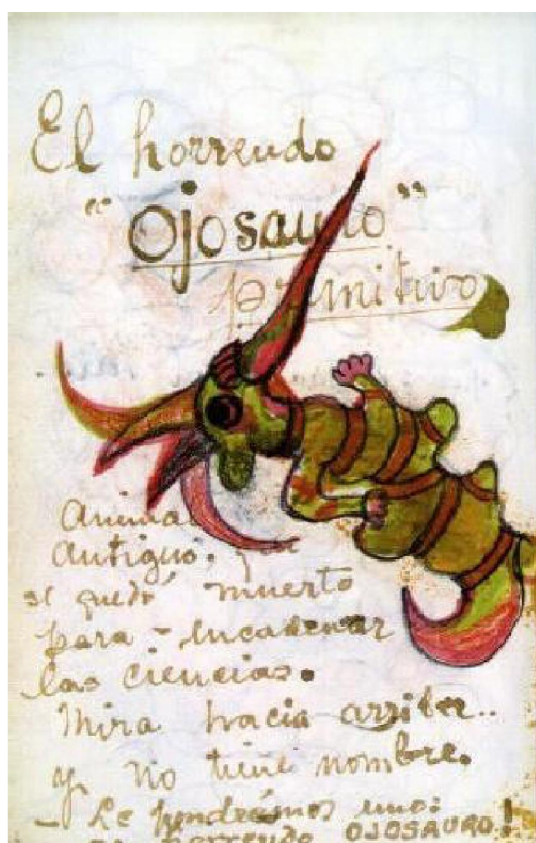 El horrendo
"Ojosauro"
primitivo
Animal
antiguo, que
se quedó muerto
para - encadenar
las ciencias.
Mira hacia arriba..
y no tiene nombre.
- Le pondrémos uno:
horrendo OJOSAURO!